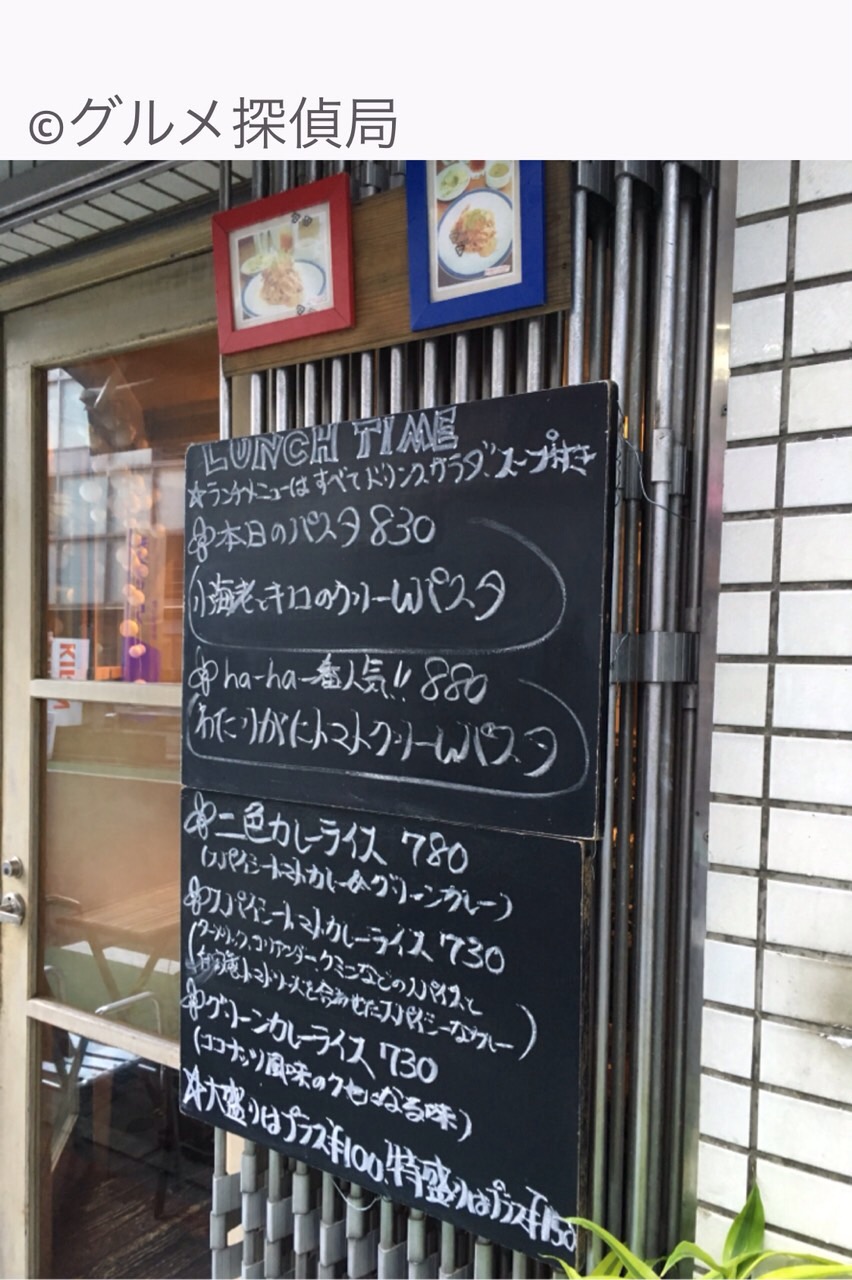 ©グルメ探偵局
LUNCH TIME
☆ランチメニューは すべて ドリンク、サラダ、スープ付き
本日のパスタ 830
小海老とキノコのクリームパスタ
ha-ha 一番人気!! 880
わたりがにトマトクリームパスタ
二色カレーライス 780
(スパイシートマトカレー&グリーンカレー)
スパイシートマトカレーライス 730
(ターメリック、コリアンダー、クミンなどのスパイスと
トマトソースを合わせたスパイシーなカレー)
グリーンカレーライス 730
(ココナッツ風味のクセになる味)
☆大盛りはプラス¥100、特盛りはプラス¥150